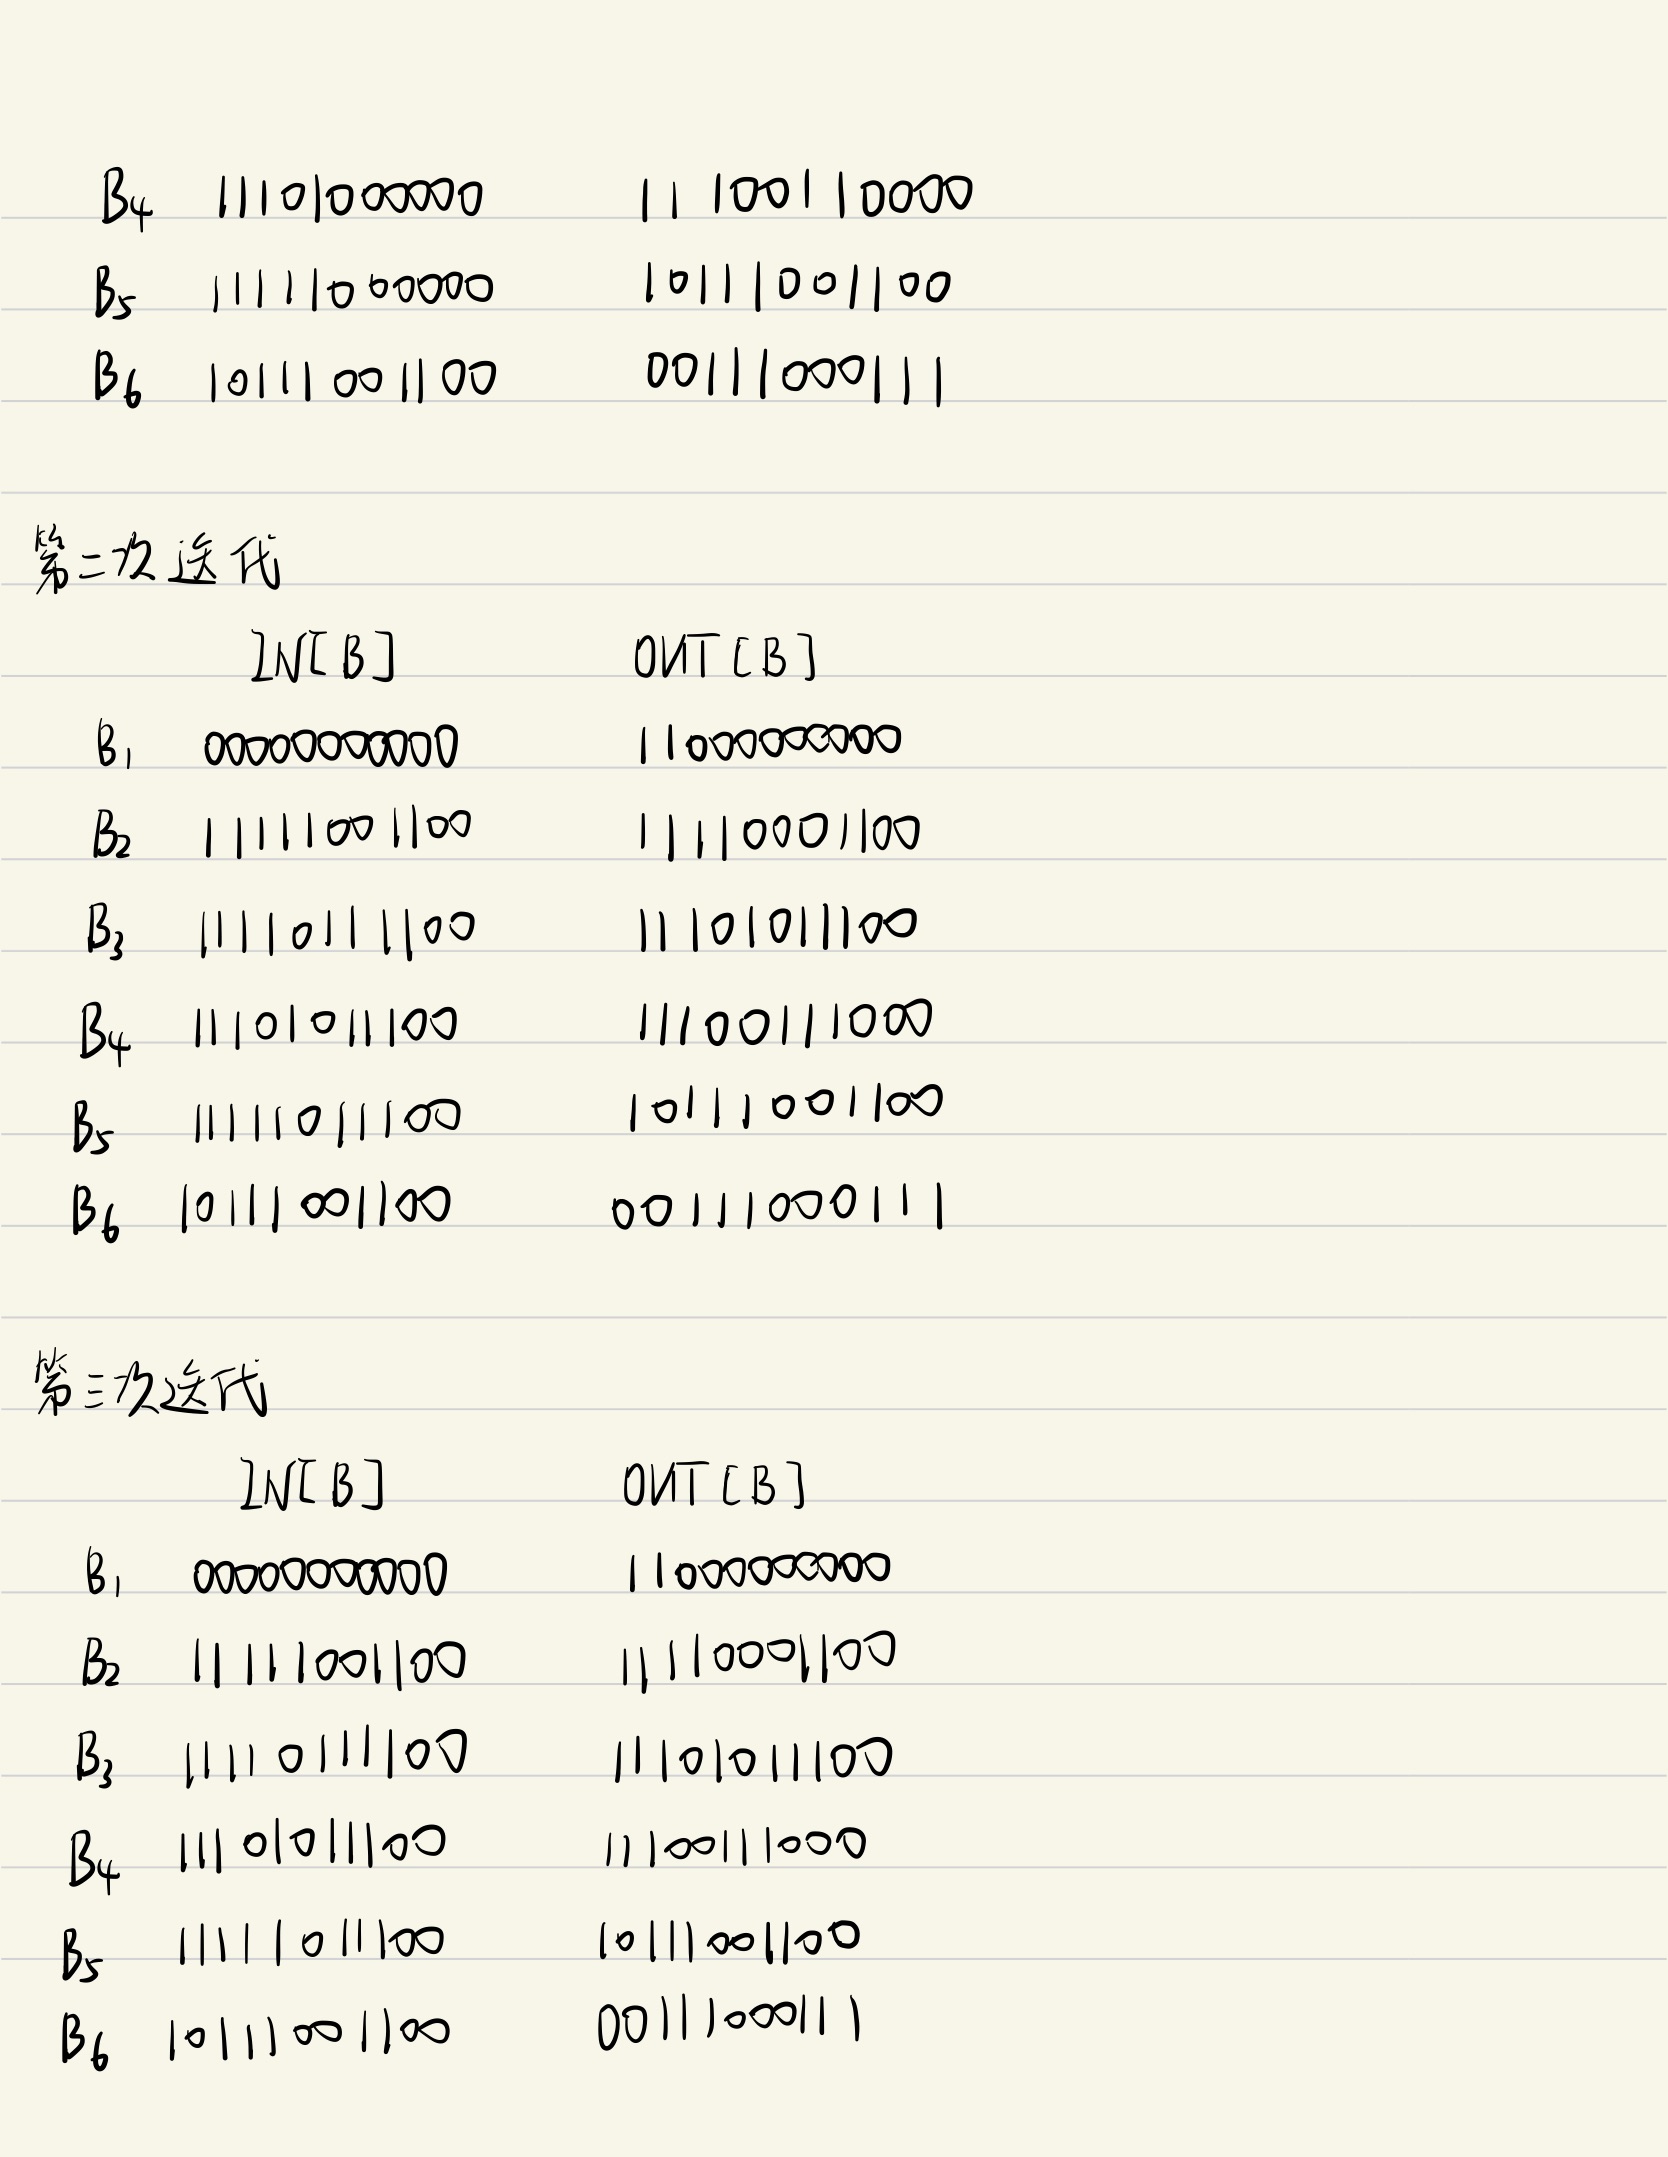 B4 11101000000 11100110000
B5 11111000000 10111001100
B6 10111001100 00111000111
第二次迭代
IN[B] OUT[B]
B1 00000000000 11000000000
B2 11111001100 11110001100
B3 11110111100 11101011100
B4 11101011100 11100111000
B5 11111011100 10111001100
B6 10111001100 00111000111
第三次迭代
IN[B] OUT[B]
B1 00000000000 11000000000
B2 11111001100 11110001100
B3 11110111100 11101011100
B4 11101011100 11100111000
B5 11111011100 10111001100
B6 10111001100 00111000111